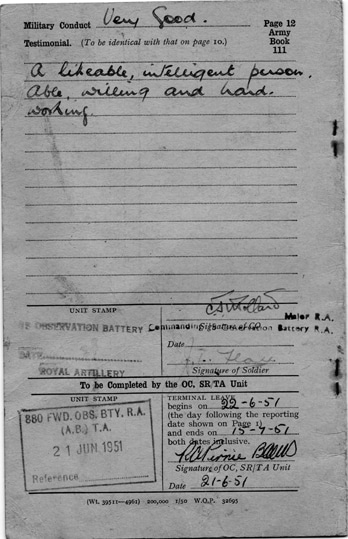 Military Conduct Very Good.
Page 12
Army
Book
111
Testimonial. (To be identical with that on page 10.)
A likeable, intelligent person.
Able, willing and hard-
working.
UNIT STAMP
OBSERVATION BATTERY
DATE
ROYAL ARTILLERY
Major R.A.
Commanding Observation Battery R.A.
Signature of
Date
Signature of Soldier
To be Completed by the OC, SR/TA Unit
UNIT STAMP
880 FWD. OBS. BTY. R.A.
(A.B.) T.A.
21 JUN 1951
Reference
TERMINAL LEAVE
begins on 22-6-51
(the day following the reporting
date shown on Page 1)
and ends on 15-7-51
both dates inclusive.
Signature of OC, SR/TA Unit
Date 21-6-51
(Wt. 39511—4961) 200,000 1/50 W.O.P. 32695